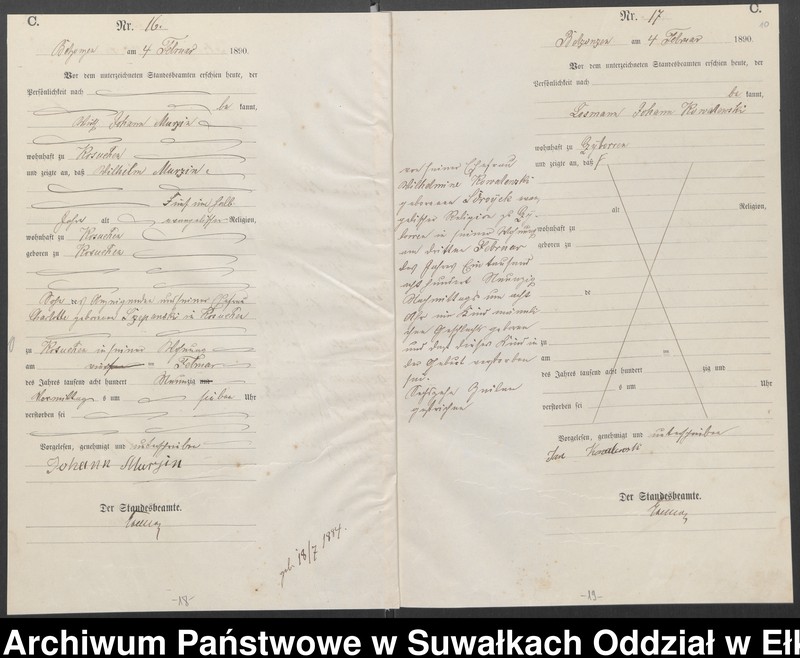 C.
Nr. 16.
am 4 Februar 1890.
Vor dem unterzeichneten Standesbeamten erschien heute, der
Persönlichkeit nach
be kannt,
Johann Murzin
wohnhaft zu Kosuchen
und zeigte an, daß Wilhelm Murzin
Fünf ein halb
Jahre alt evangelischer Religion,
wohnhaft zu Kosuchen
geboren zu Kosuchen
Sohn des Anzeigenden und seiner Ehefrau
Charlotte geborenen in Kosuchen
zu Kosuchen in seiner Wohnung
am Februar
des Jahres tausend acht hundert Neunzig
Vormittags um sieben Uhr
verstorben sei
Vorgelesen, genehmigt und unterschrieben
Johann Murzin
Der Standesbeamte.
geb. 18/7 1884.
-18-
C.
Nr. 17
10
am 4 Februar 1890.
Vor dem unterzeichneten Standesbeamten erschien heute, der
Persönlichkeit nach
be kannt,
Johann Kowalewski
wohnhaft zu
und zeigte an, daß
alt Religion,
wohnhaft zu
geboren zu
de
zu
am ten
des Jahres tausend acht hundert zig und
um Uhr
verstorben sei
von seiner Ehefrau
Wilhelmine Kowalewski
geborenen evan
gelischer Religion zu
in seiner Wohnung
am dritten Februar
des Jahres Ein tausend
acht hundert Neunzig
Nachmittags um acht
Uhr ein Kind männli
chen Geschlechts geboren
und daß dieses Kind in
der Geburt verstorben
sei.
Sechszehn Zeilen
gestrichen
Vorgelesen, genehmigt und unterschrieben
Kowalewski
Der Standesbeamte.
-19-
Archiwum Państwowe w Suwałkach Oddział w Ełk